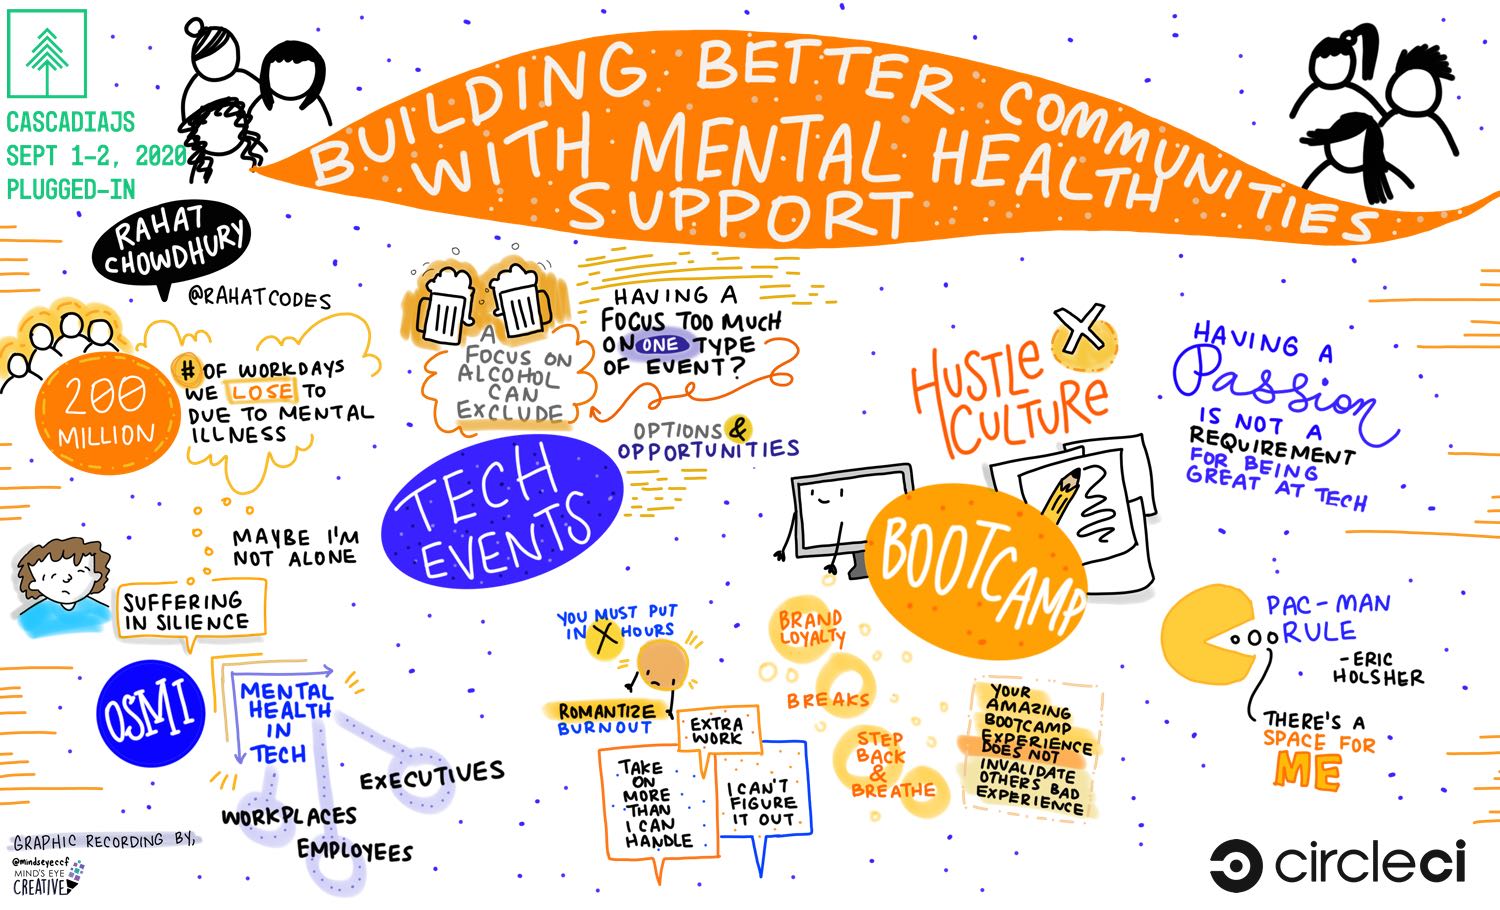 CASCADIAJS
SEPT 1-2, 2020
PLUGGED-IN
BUILDING BETTER COMMUNITIES
WITH MENTAL HEALTH
SUPPORT
RAHAT
CHOWDHURY
@RAHATCODES
200
MILLION
# OF WORKDAYS
WE LOSE TO
DUE TO MENTAL
ILLNESS
MAYBE I'M
NOT ALONE
SUFFERING
IN SILIENCE
OSMI
MENTAL
HEALTH
IN
TECH
EXECUTIVES
WORKPLACES
EMPLOYEES
A
FOCUS ON
ALCOHOL
CAN
EXCLUDE
HAVING A
FOCUS TOO MUCH
ON ONE TYPE
OF EVENT?
OPTIONS &
OPPORTUNITIES
TECH
EVENTS
YOU MUST PUT
IN X HOURS
ROMANTIZE
BURNOUT
EXTRA
WORK
TAKE
ON
MORE
THAN
I CAN
HANDLE
I CAN'T
FIGURE
IT OUT
X
HUSTLE
CULTURE
BOOTCAMP
BRAND
LOYALTY
BREAKS
STEP
BACK
&
BREATHE
YOUR
AMAZING
BOOTCAMP
EXPERIENCE
DOES NOT
INVALIDATE
OTHERS BAD
EXPERIENCE
HAVING A
Passion
IS NOT A
REQUIREMENT
FOR BEING
GREAT AT TECH
PAC-MAN
RULE
-ERIC
HOLSHER
THERE'S A
SPACE FOR
ME
GRAPHIC RECORDING BY,
@mindseyeccf
MIND'S EYE
CREATIVE
circleci